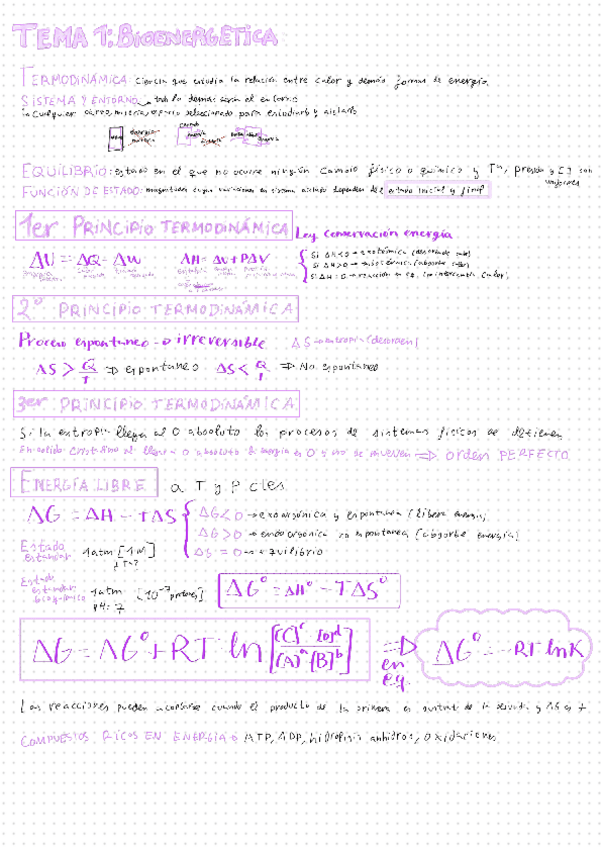 TEMA 1: BIOENERGÉTICA
TERMODINÁMICA: Ciencia que estudia la relación entre calor y demás formas de energía
SISTEMA Y ENTORNO → todo lo demás sería el entorno
Cualquier materia, espacio seleccionado para estudiarlo y aislarlo
EQUILIBRIO: estado en el que no ocurre ningún cambio físico o químico y Tª, presión y [ ] son uniformes
FUNCIÓN DE ESTADO: magnitudes cuyas variaciones en sistema aislado dependen del estado inicial y final
1er PRINCIPIO TERMODINÁMICA Ley conservación energía
ΔU = ΔQ - ΔW ΔH = ΔU + PΔV
Si ΔH<0 → exotérmica (desprende calor)
Si ΔH>0 → endotérmica (absorbe calor)
Si ΔH=0 → reacción en eq. (no intercambia calor)
2º PRINCIPIO TERMODINÁMICA
Proceso espontaneo → irreversible ΔS → entropía (desorden)
ΔS > Q/T ⇒ espontaneo ΔS < Q/T ⇒ No espontaneo
3er PRINCIPIO TERMODINÁMICA
Si la entropía llega al 0 absoluto los procesos de sistemas físicos se detienen
En sólido cristalino al llegar a 0 absoluto la energía es 0 y no se mueven ⇒ orden PERFECTO
ENERGÍA LIBRE a T y P ctes
ΔG = ΔH - TΔS
ΔG<0 → exorgónica y espontanea (libera energía)
ΔG>0 → endorgonica no espontanea (absorbe energía)
ΔS = 0 → equilibrio
Estado estandar 1atm [1M]
Estado estandar bioquímico 1atm [10⁻⁷ protones]
pH: 7
ΔGº = ΔHº - TΔSº
ΔG = ΔGº + RT ln [[C]ᶜ [D]ᵈ / [A]ᵃ [B]ᵇ] ⇒ en eq. ΔGº = -RT ln K
Las reacciones pueden acoplarse cuando el producto de la primera es sustrato de la segunda y
COMPUESTOS RICOS EN ENERGÍA → ATP, ADP, hidrólisis anhidros, oxidaciones